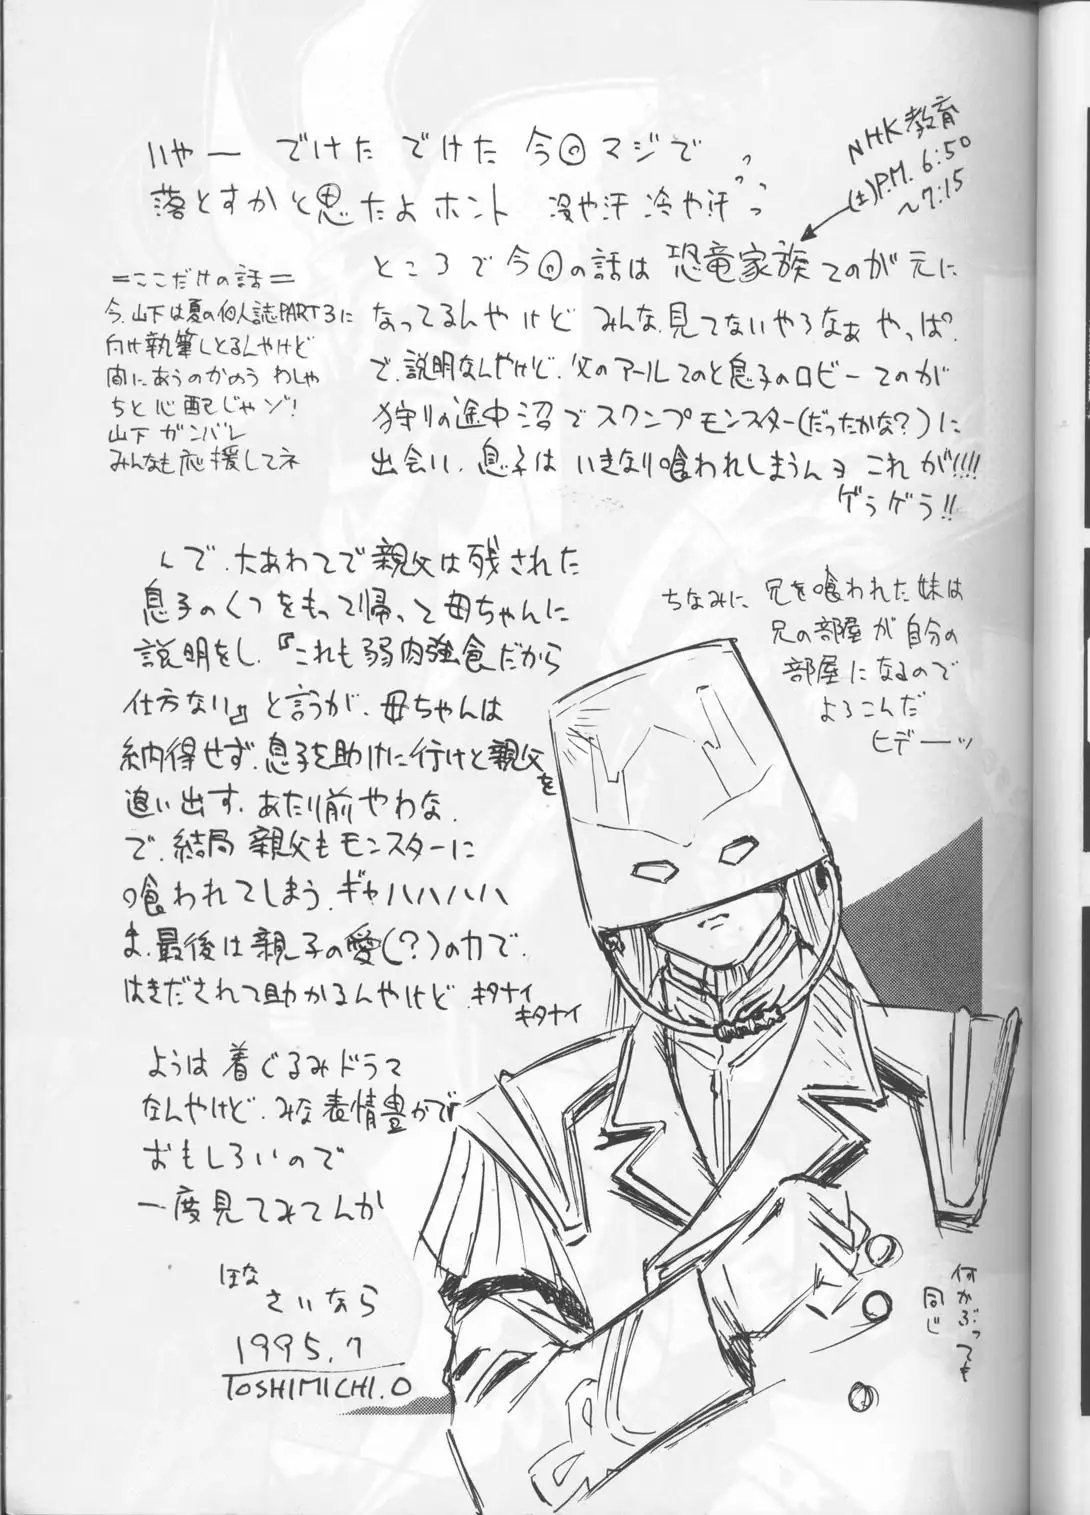 いやー でけた でけた 今回マジで
落とすかと思たよホント 没や汗 冷や汗
NHK教育
(土)P.M. 6:50
～7:15
ところで今回の話は 恐竜家族てのが元に
なってるんやけど みんな見てないやろなぁ やっぱ?
で、説明なんやけど、父のアールてのと息子のロビーてのが
狩りの途中沼でスワンプモンスター(だったかな?)に
出会い、息子はいきなり喰われしまうんヨ これが!!!!
ゲラゲラ!!
=ここだけの話=
今、山下は夏の個人誌PART3に
向け執筆しとるんやけど
間にあうのかのう わしゃ
ちと心配じゃゾ!
山下 ガンバレ
みんなも応援してネ
んで、大あわてで親父は残された
息子のくつをもって帰って母ちゃんに
説明をし、『これも弱肉強食だから
仕方ない』と言うが、母ちゃんは
納得せず、息子を助けに行けと親父を
追い出す、あたり前やわな、
で、結局 親父もモンスターに
喰われてしまう、ギャハハハハハ
ま、最後は親子の愛(?)の力で、
はきだされて助かるんやけど キタナイ
キタナイ
ちなみに 兄を喰われた妹は
兄の部屋が自分の
部屋になるので
よろこんだ
ヒデーッ
ようは着ぐるみドラマ
なんやけど、みな表情豊かで
おもしろいので
一度見てみてんか
ほな
さいなら
1995.7
TOSHIMICHI.O
何かぶっても
同じ